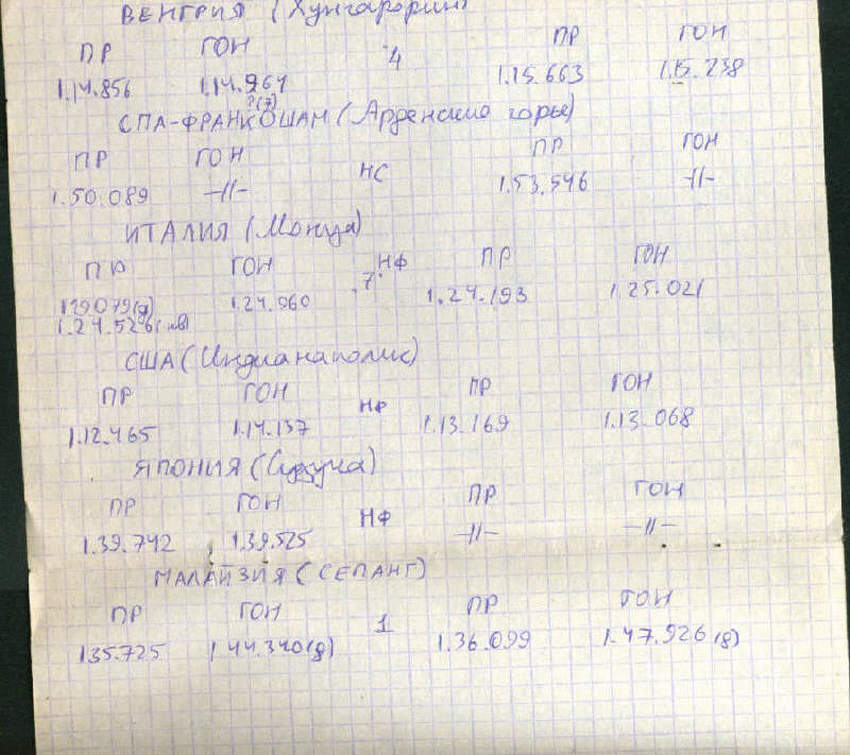 ВЕНГРИЯ (Хунгароринг)
ПР ГОН 4 ПР ГОН
1.14.856 1.14.961 1.15.663 1.15.238
?(7)
СПА-ФРАНКОШАН (Арденские горы)
ПР ГОН НС ПР ГОН
1.50.089 -//- 1.53.546 -//-
ИТАЛИЯ (Монца)
ПР ГОН 7 НФ ПР ГОН
1.24.960 1.24.193 1.25.021
1.24.526
США (Индианаполис)
ПР ГОН НФ ПР ГОН
1.12.465 1.14.137 1.13.169 1.13.068
ЯПОНИЯ (Судзука)
ПР ГОН НФ ПР ГОН
1.39.742 1.39.525 -//- -//-
МАЛАЙЗИЯ (СЕПАНГ)
ПР ГОН 1 ПР ГОН
1.35.725 1.44.340(g) 1.36.099 1.47.926(g)